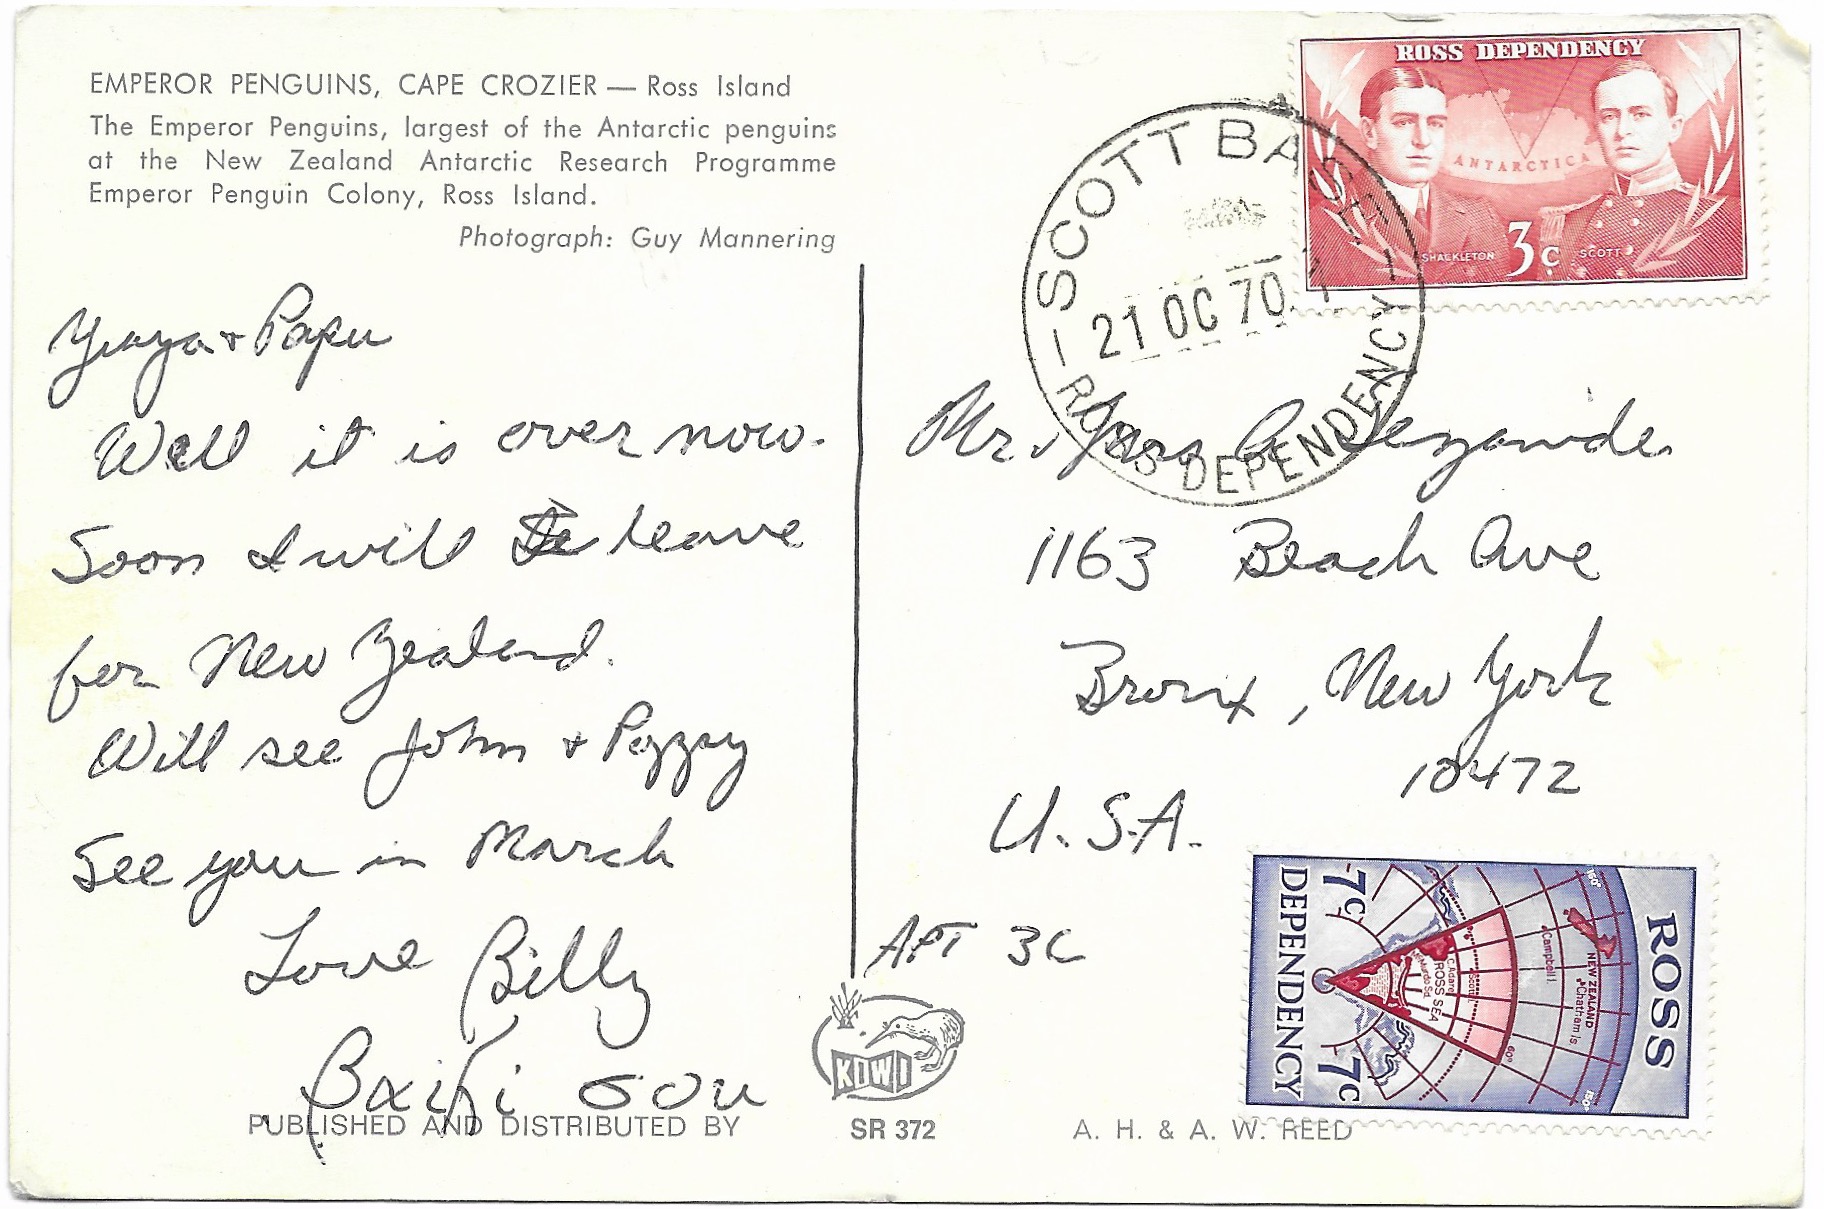 EMPEROR PENGUINS, CAPE CROZIER — Ross Island
The Emperor Penguins, largest of the Antarctic penguins
at the New Zealand Antarctic Research Programme
Emperor Penguin Colony, Ross Island.
Photograph: Guy Mannering
Yiaya + Papu
Well it is over now.
Soon I will leave
for New Zealand.
Will see John + Peggy
See you in March
Love Billy
σου
ROSS DEPENDENCY
ANTARCTICA
SHACKLETON 3c SCOTT
SCOTT BASE
21 OC 70
ROSS DEPENDENCY
Mr.
1163 Beach Ave
Bronx, New York
10472
U.S.A.
APT 3C
ROSS
DEPENDENCY
7c 7c
NEW ZEALAND
Chatham Is
Campbell I.
Scott I.
C. Adare
ROSS SEA
McMurdo Sd.
160°
150°
60°
KIWI
PUBLISHED AND DISTRIBUTED BY SR 372 A. H. & A. W. REED